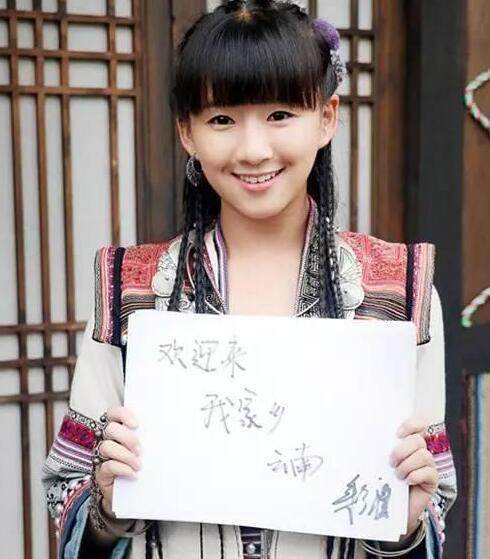 欢迎来
我家乡
云南